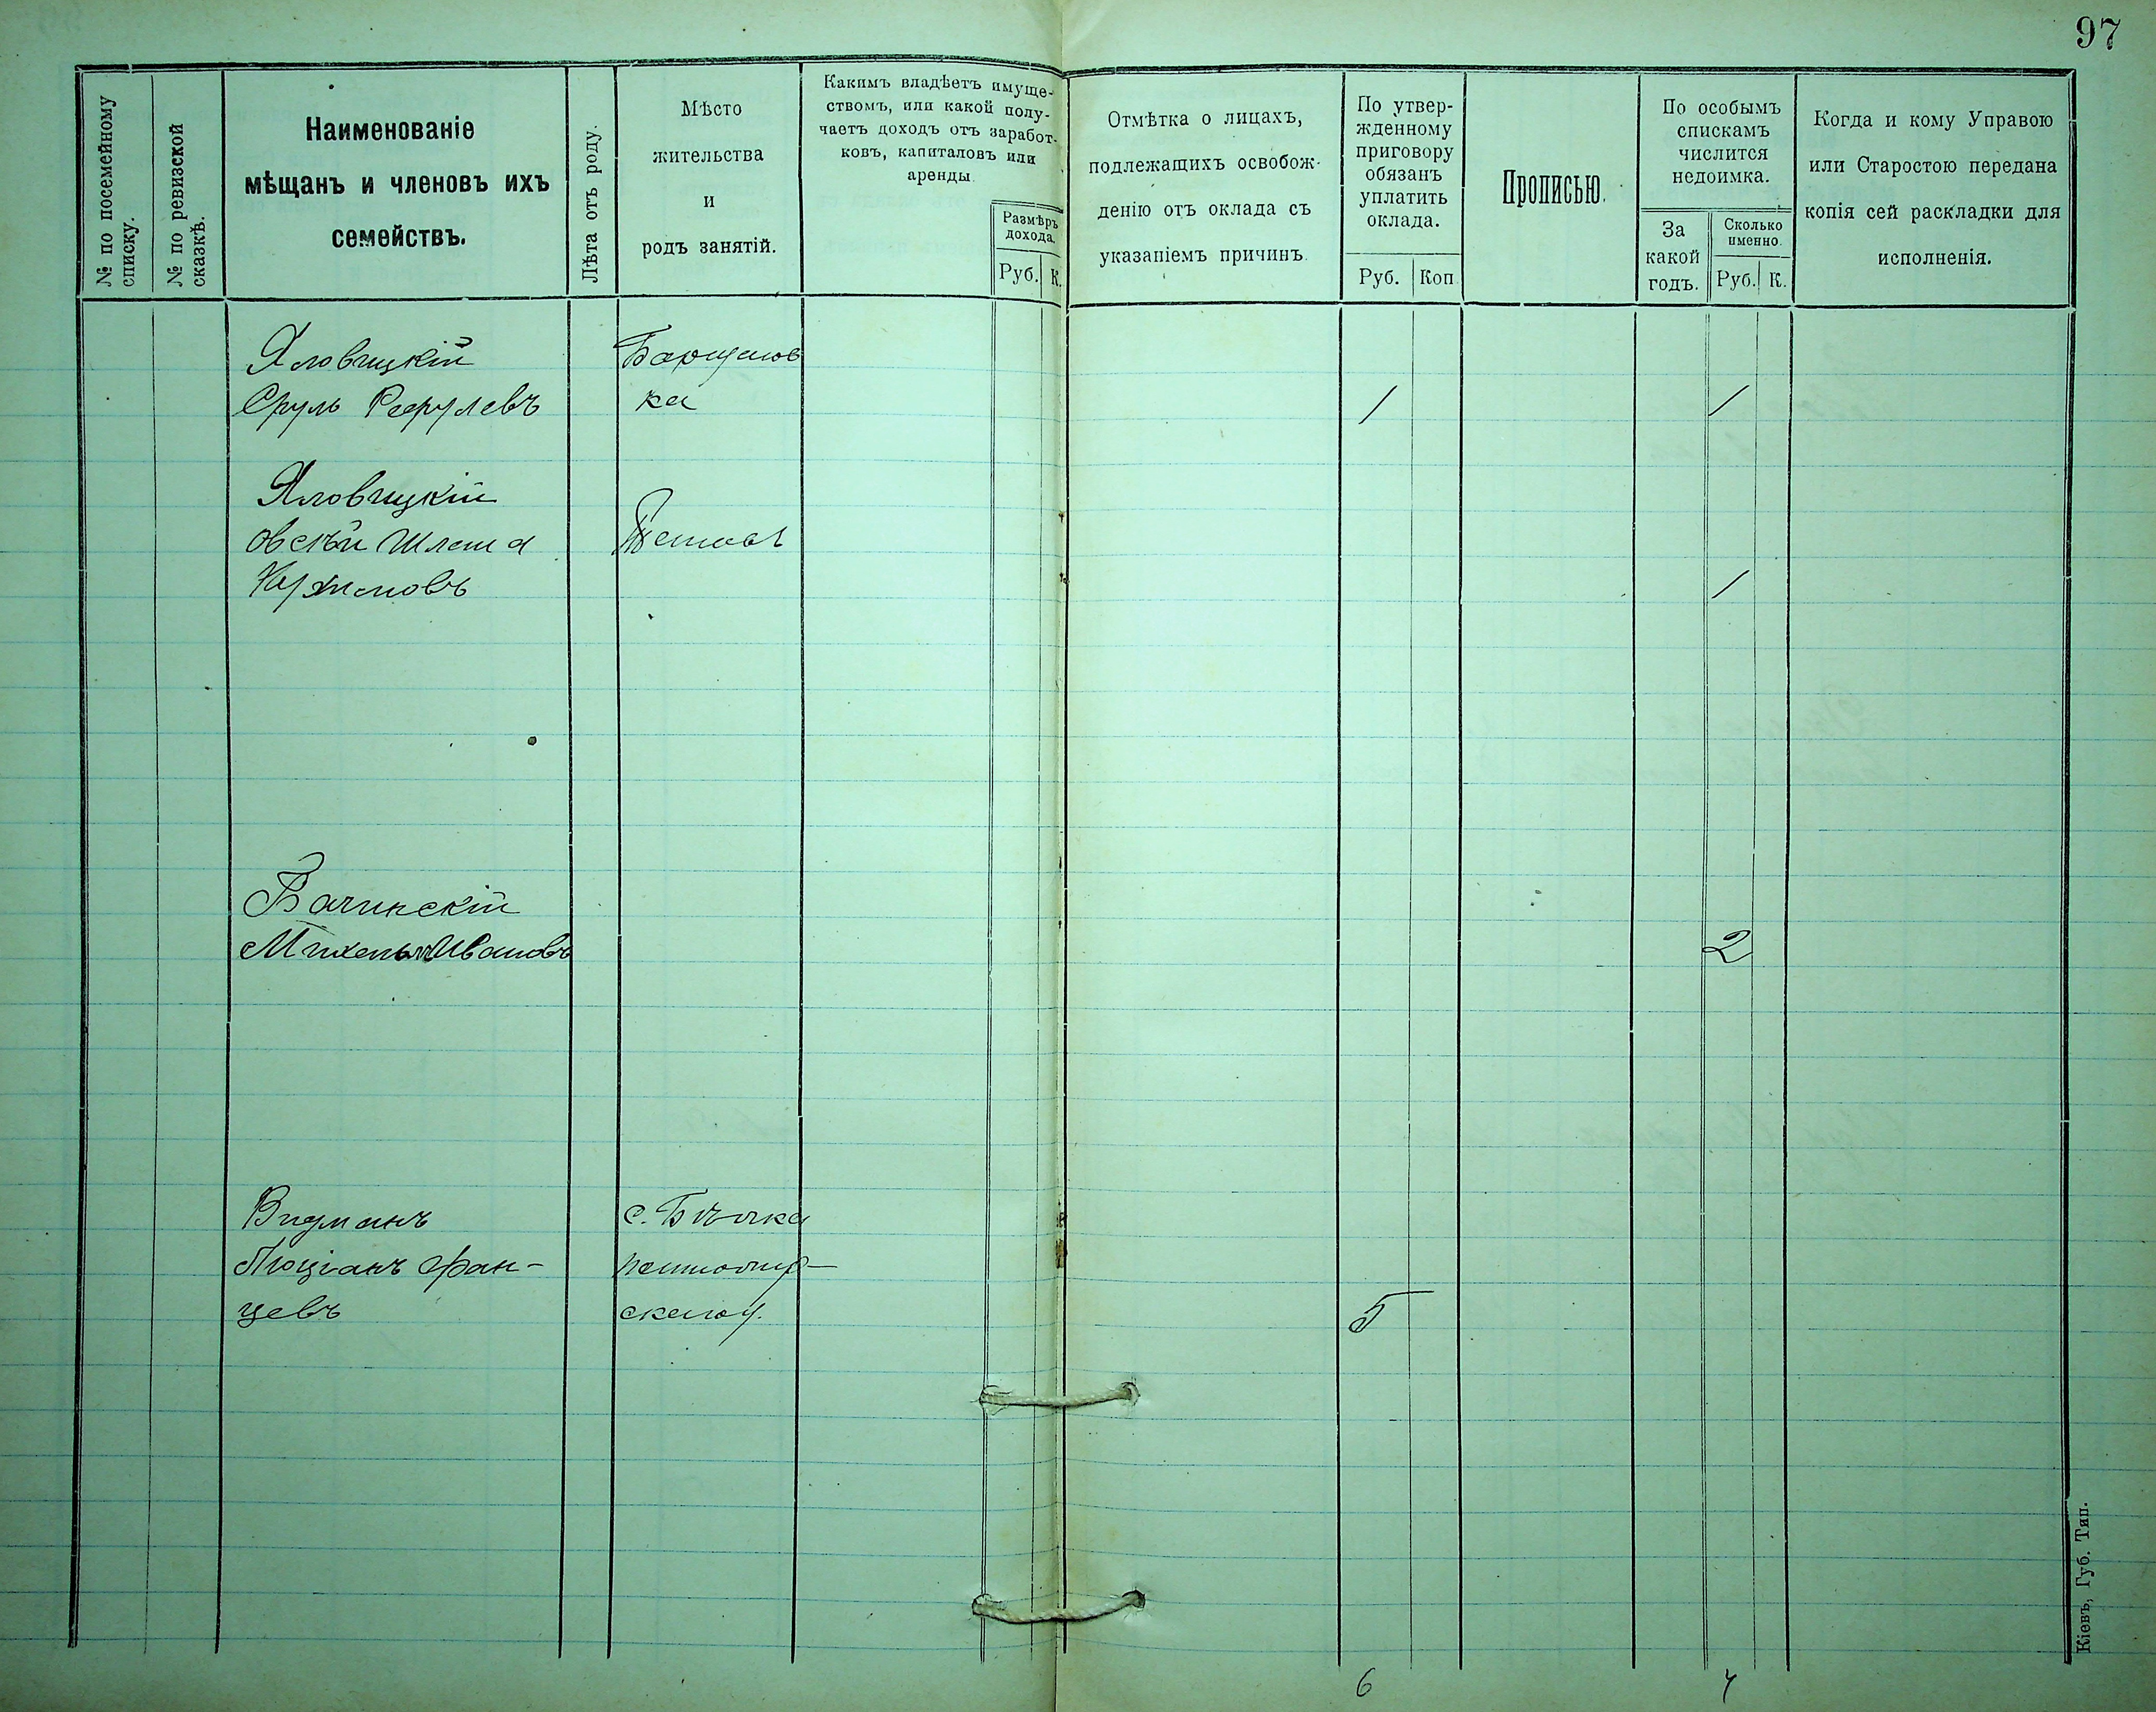 97
№ по посемейному списку.
№ по ревизской сказкѣ.
Наименованіе
мѣщанъ и членовъ ихъ
семействъ.
Лѣта отъ роду.
Мѣсто
жительства
и
родъ занятій.
Какимъ владѣетъ имуще-
ствомъ, или какой полу-
чаетъ доходъ отъ заработ-
ковъ, капиталовъ или
аренды.
Размѣръ
дохода.
Руб. К.
Отмѣтка о лицахъ,
подлежащихъ освобож-
денію отъ оклада съ
указаніемъ причинъ.
По утвер-
жденному
приговору
обязанъ
уплатить
оклада.
Руб. Коп.
Прописью.
По особымъ
спискамъ
числится
недоимка.
За
какой
годъ.
Сколько
именно.
Руб. К.
Когда и кому Управою
или Старостою передана
копія сей раскладки для
исполненія.
Яловицкій
Сруль 1 1
Яловицкій
Шлема
1
Вачинскій
Ивановъ 2
Видманъ с.
Люціанъ Фран-
цевъ 5
6 4
Кіевъ, Губ. Тип.